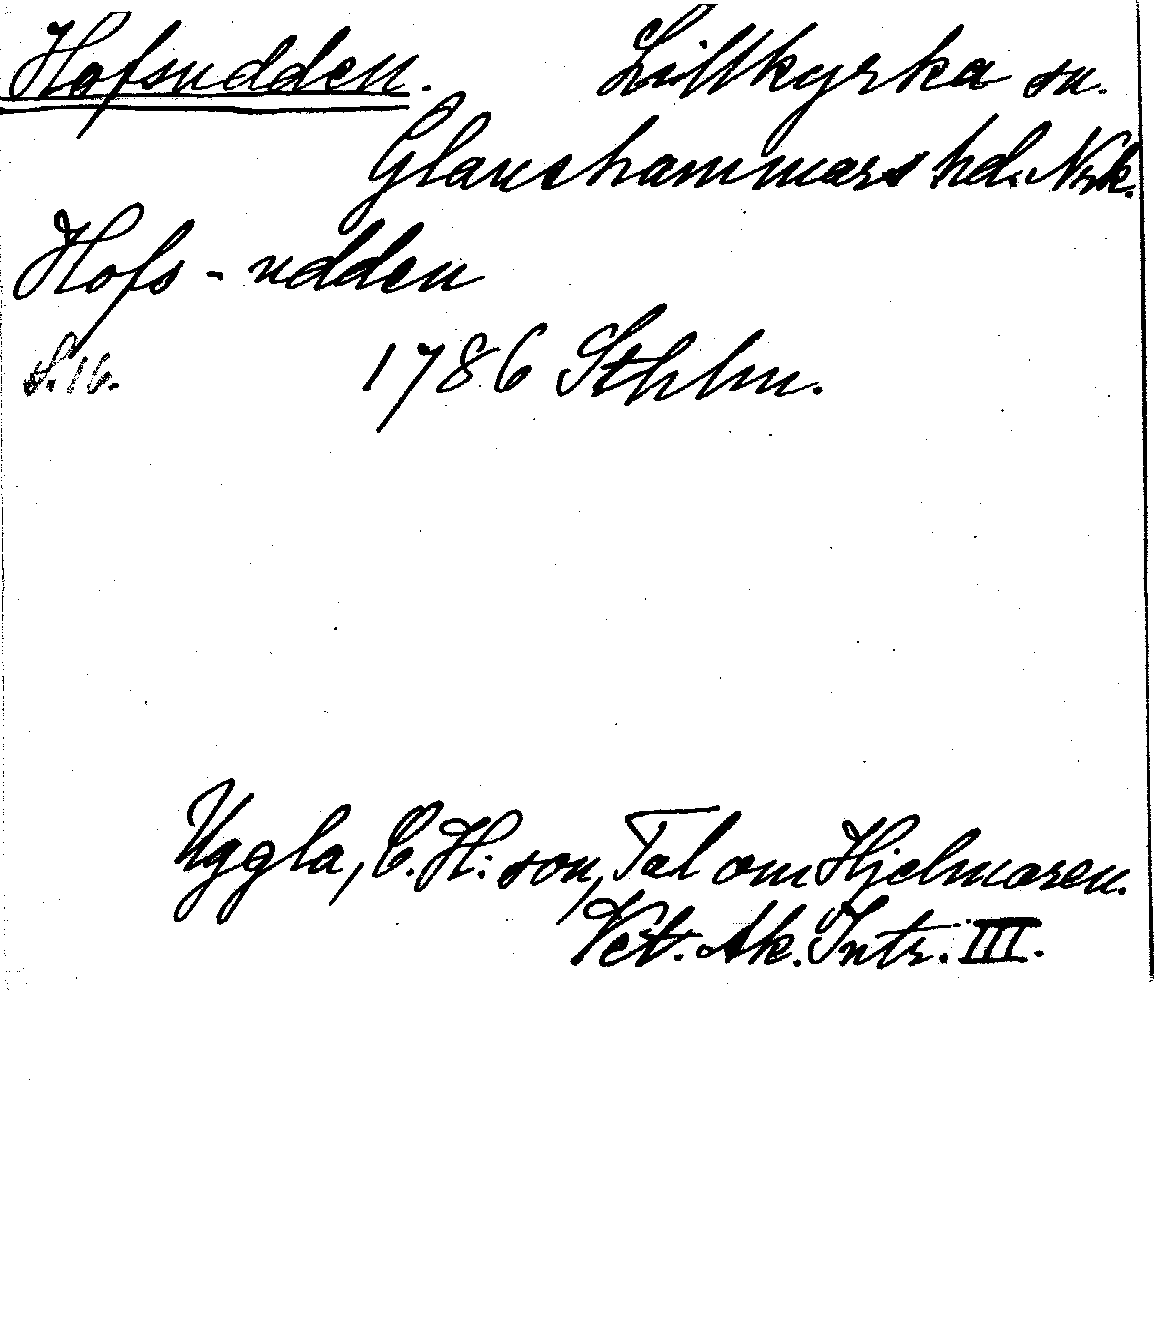 Hofsudden. Lillkyrka sn.
Glanshammars hd. Nrk.
Hofs-udden
S. 16. 1786 Sthlm.
Uggla, C. H:son, Tal om Hjelmaren.
Vet. Ak. Intr. III.